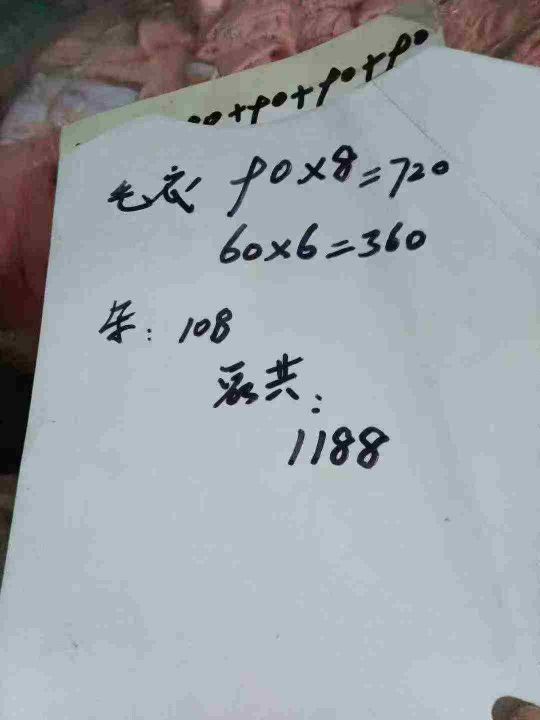 90+90+90
毛衣 90×8=720
60×6=360
朱：108
总共：
1188